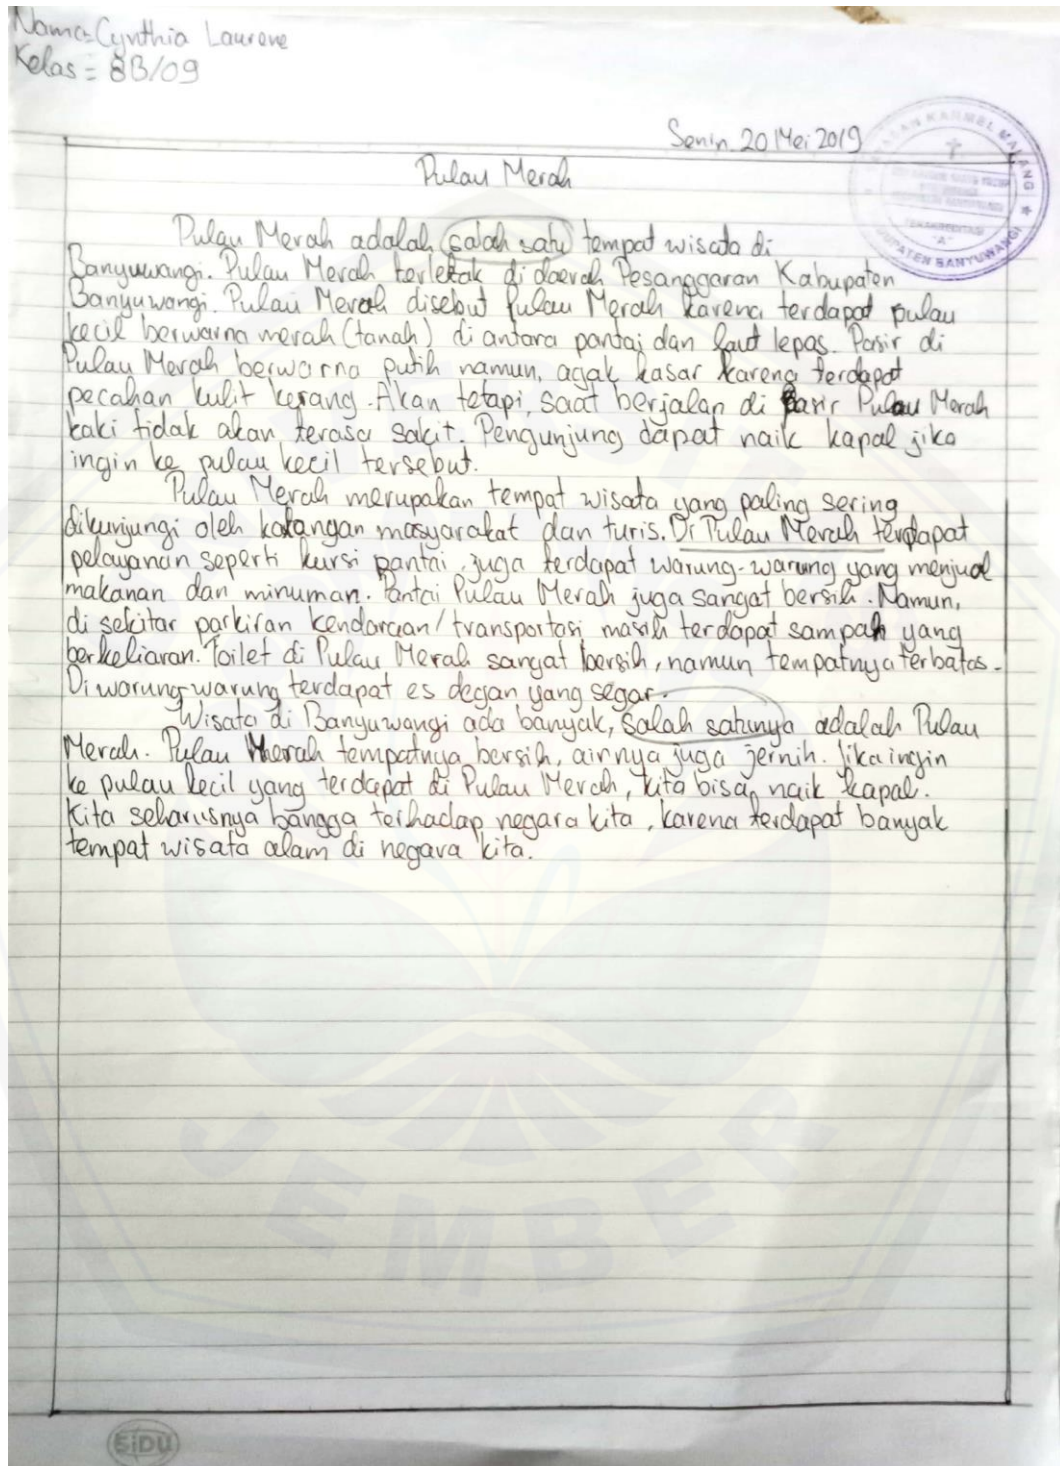 Nama= Cynthia Laurene
Kelas = 8B/09
Senin, 20 Mei 2019
Pulau Merah
Pulau Merah adalah salah satu tempat wisata di
Banyuwangi. Pulau Merah terletak di daerah Pesanggaran Kabupaten
Banyuwangi. Pulau Merah disebut Pulau Merah karena terdapat pulau
kecil berwarna merah (tanah) di antara pantai dan laut lepas. Pasir di
Pulau Merah berwarna putih namun, agak kasar karena terdapat
pecahan kulit kerang. Akan tetapi, saat berjalan di pasir Pulau Merah
kaki tidak akan terasa sakit. Pengunjung dapat naik kapal jika
ingin ke pulau kecil tersebut.
Pulau Merah merupakan tempat wisata yang paling sering
dikunjungi oleh kalangan masyarakat dan turis. Di Pulau Merah terdapat
pelayanan seperti kursi pantai, juga terdapat warung-warung yang menjual
makanan dan minuman. Pantai Pulau Merah juga sangat bersih. Namun,
di sekitar parkiran kendaraan/transportasi masih terdapat sampah yang
berkeliaran. Toilet di Pulau Merah sangat bersih, namun tempatnya terbatas.
Di warung-warung terdapat es degan yang segar.
Wisata di Banyuwangi ada banyak, salah satunya adalah Pulau
Merah. Pulau Merah tempatnya bersih, airnya juga jernih. Jika ingin
ke pulau kecil yang terdapat di Pulau Merah, kita bisa naik kapal.
Kita seharusnya bangga terhadap negara kita, karena terdapat banyak
tempat wisata alam di negara kita.
YAYASAN KARMEL MALANG
KABUPATEN BANYUWANGI
TERAKREDITASI
"A"
JEMBER
SiDU